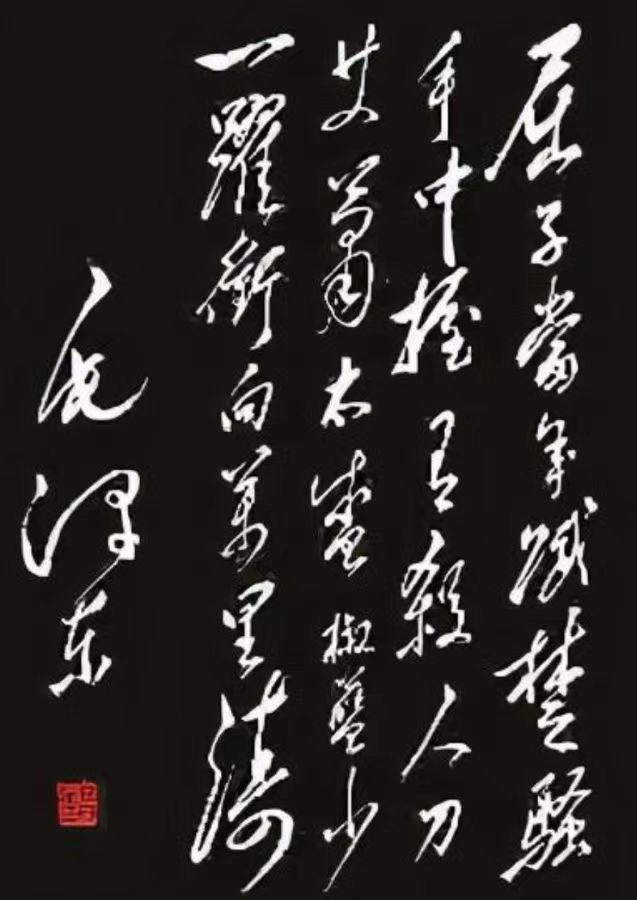 屈子當年賦楚騷
手中握有殺人刀
艾蕭太盛椒藍少
一躍衝向萬里濤
毛泽东